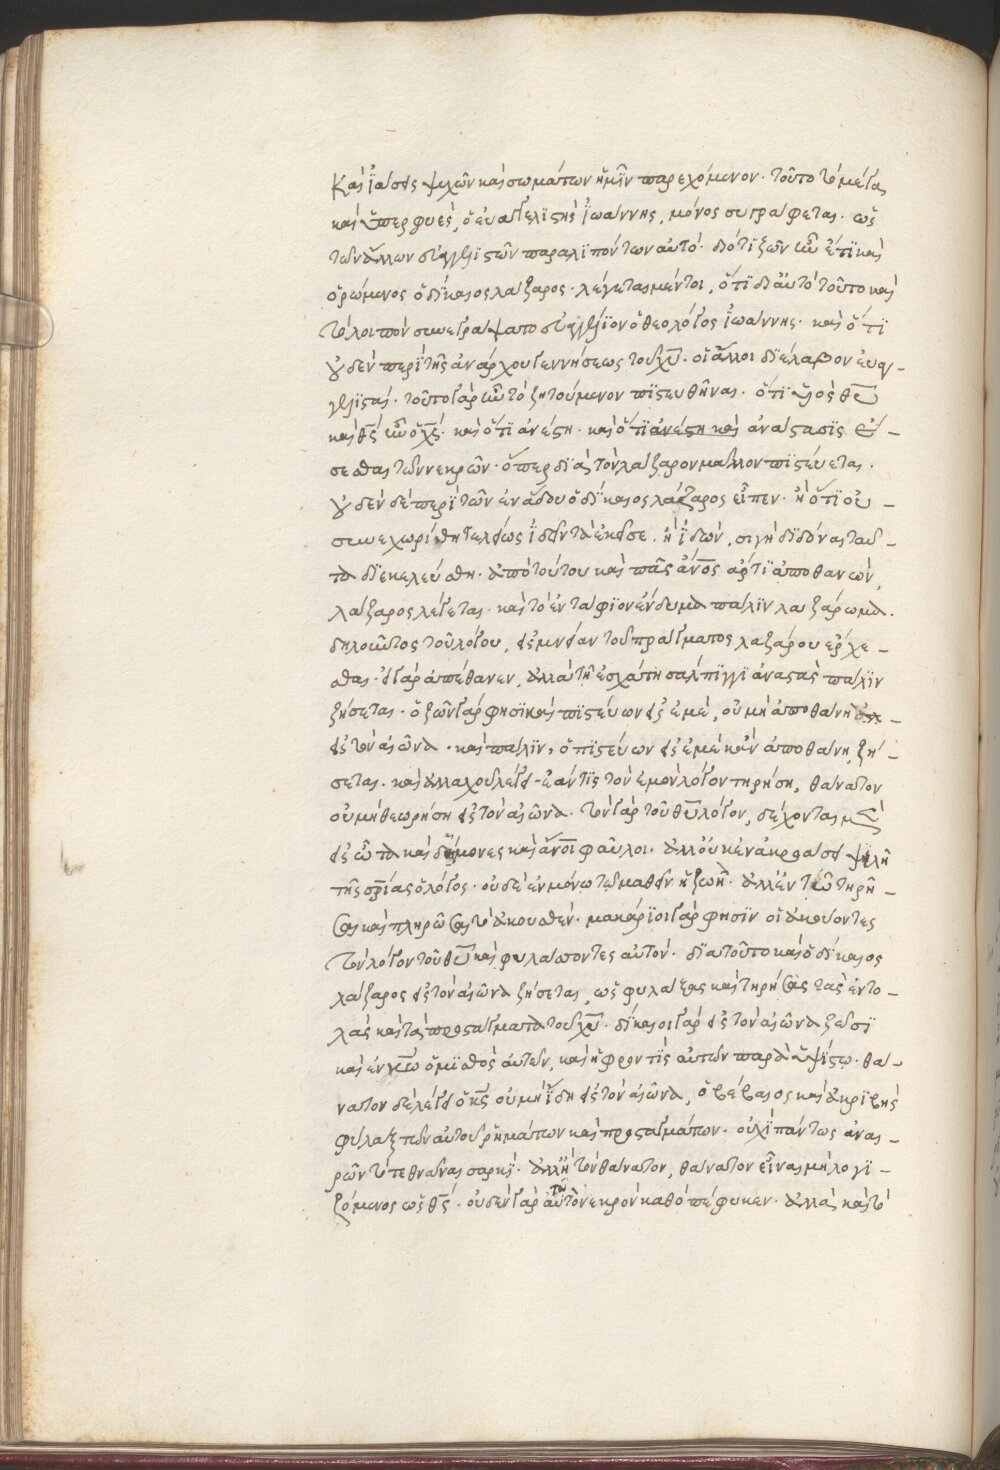 καὶ ἰάσεις ψυχῶν καὶ σωμάτων ἡμῖν παρεχόμενον· τοῦτο τὸ μέγα
καὶ ὑπερφυὲς, ὁ εὐαγγελιστὴς ἰωάννης, μόνος συγγράφεται· ὡς
τῶν ἄλλων εὐαγγελιστῶν παραλιπόντων αὐτό· διότι ζῶν ἦν ἔτι καὶ
ὁρώμενος ὁ δίκαιος λάζαρος· λέγεται μέντοι, ὅτι δι αὐτὸ τοῦτο καὶ
τὸ λοιπὸν συνεγράψατο εὐαγγέλιον ὁ θεολόγος ἰωάννης· καὶ ὅτι
οὐδὲν περὶ τῆς ἀνάρχου γεννήσεως τοῦ χ̅υ̅· οἱ ἄλλοι διέλαβον εὐαγ-
γελισταί· τοῦτο γὰρ ἦν τὸ ζητούμενον πιστευθῆναι· ὅτι υἱὸς θ̅υ̅
καὶ θ̅ς̅ ἦν ὁ χ̅ς̅· καὶ ὅτι ἀνέστη· καὶ ὅτι ἀνέστη καὶ ἀνάστασις ἔ-
σεσθαι τῶν νεκρῶν· ὅπερ διὰ τὸν λάζαρον μᾶλλον πιστεύεται.
οὐδὲν δὲ περὶ τῶν ἐν ἅδου ὁ δίκαιος λάζαρος εἶπεν· ἢ ὅτι οὐ-
συνεχωρήθη τελείως ἰδεῖν τὰ ἐκεῖσε. ἢ ἰδὼν, σιγὴ διδόναι ταῦ-
τα διεκελεύσθη· ἀπὸ τούτου καὶ πᾶς ἄν̅ο̅ς̅ ἄρτι ἀποθανὼν,
λάζαρος λέγεται· καὶ τὸ ἐντάφιον ἔνδυμα πάλιν λαζάρωμα.
δηλοῦντος τοῦ λόγου, εἰς μνείαν τοῦ πράγματος λαζάρου ἔρχε-
σθαι· εἰ γὰρ ἀπέθανεν, ἀλλὰ τῇ ἐσχάτη σάλπιγγι ἀναστὰς πάλιν
ζήσεται· ὁ ζῶν γὰρ φησὶ καὶ πιστεύων εἰς ἐμὲ, οὐ μὴ ἀποθάνη
εἰς τὸν αἰῶνα· καὶ πάλιν, ὁ πιστεύων εἰς ἐμὲ κἂν ἀποθάνη, ζή-
σεται· καὶ ἀλλαχοῦ λέγει· ἐάν τις τὸν ἐμὸν λόγον τηρήση, θάνατον
οὐ μὴ θεωρήση εἰς τὸν αἰῶνα. τὸν γὰρ τοῦ θ̅υ̅ λόγον, δέχονται μὲν
εἰς ὦτα καὶ δαίμονες καὶ ἄν̅ο̅ι̅ φαῦλοι· ἀλλ οὐκ ἐν ἀκροάσει ψιλῆ
τῆς σ̅ρ̅ί̅ας ὁ λόγος· οὐδὲ ἐν μόνω τῶ μαθεῖν ἡ ζωή· ἀλλ ἐν τῶ τηρῆ-
σαι καὶ πληρῶσαι τὸ ἀκουσθέν· μακάριοι γὰρ φησὶν οἱ ἀκούοντες
τὸν λόγον τοῦ θ̅υ̅ καὶ φυλάττοντες αὐτόν· διὰ τοῦτο καὶ ὁ δίκαιος
λάζαρος εἰς τὸν αἰῶνα ζήσεται, ὡς φυλάξας καὶ τηρήσας τὰς ἐντο-
λὰς καὶ τὰ προστάγματα τοῦ χ̅υ̅· δίκαιοι γὰρ εἰς τὸν αἰῶνα ζῶσι
καὶ ἐν κ̅ω̅ ὁ μισθὸς αὐτῶν, καὶ ἡ φροντὶς αὐτῶν παρὰ ὑψίστω· θά-
νατον δὲ λέγει ὁ κ̅ς̅ οὐ μὴ ἴδη εἰς τὸν αἰῶνα, ὁ βέβαιος καὶ ἀκριβὴς
φύλαξ τῶν αὐτοῦ ῥημάτων καὶ προσταγμάτων· οὐχὶ πάντως ἀναι-
ρῶν τὸ τεθνᾶναι σαρκί· ἀλλὴ τὸν θάνατον, θάνατον εἶναι μὴ λογι-
ζόμενος ὡς θ̅ς̅· οὐδὲν γὰρ αὐτῶ νεκρὸν καθὸ πέφυκεν· ἀλλὰ καὶ τὸ